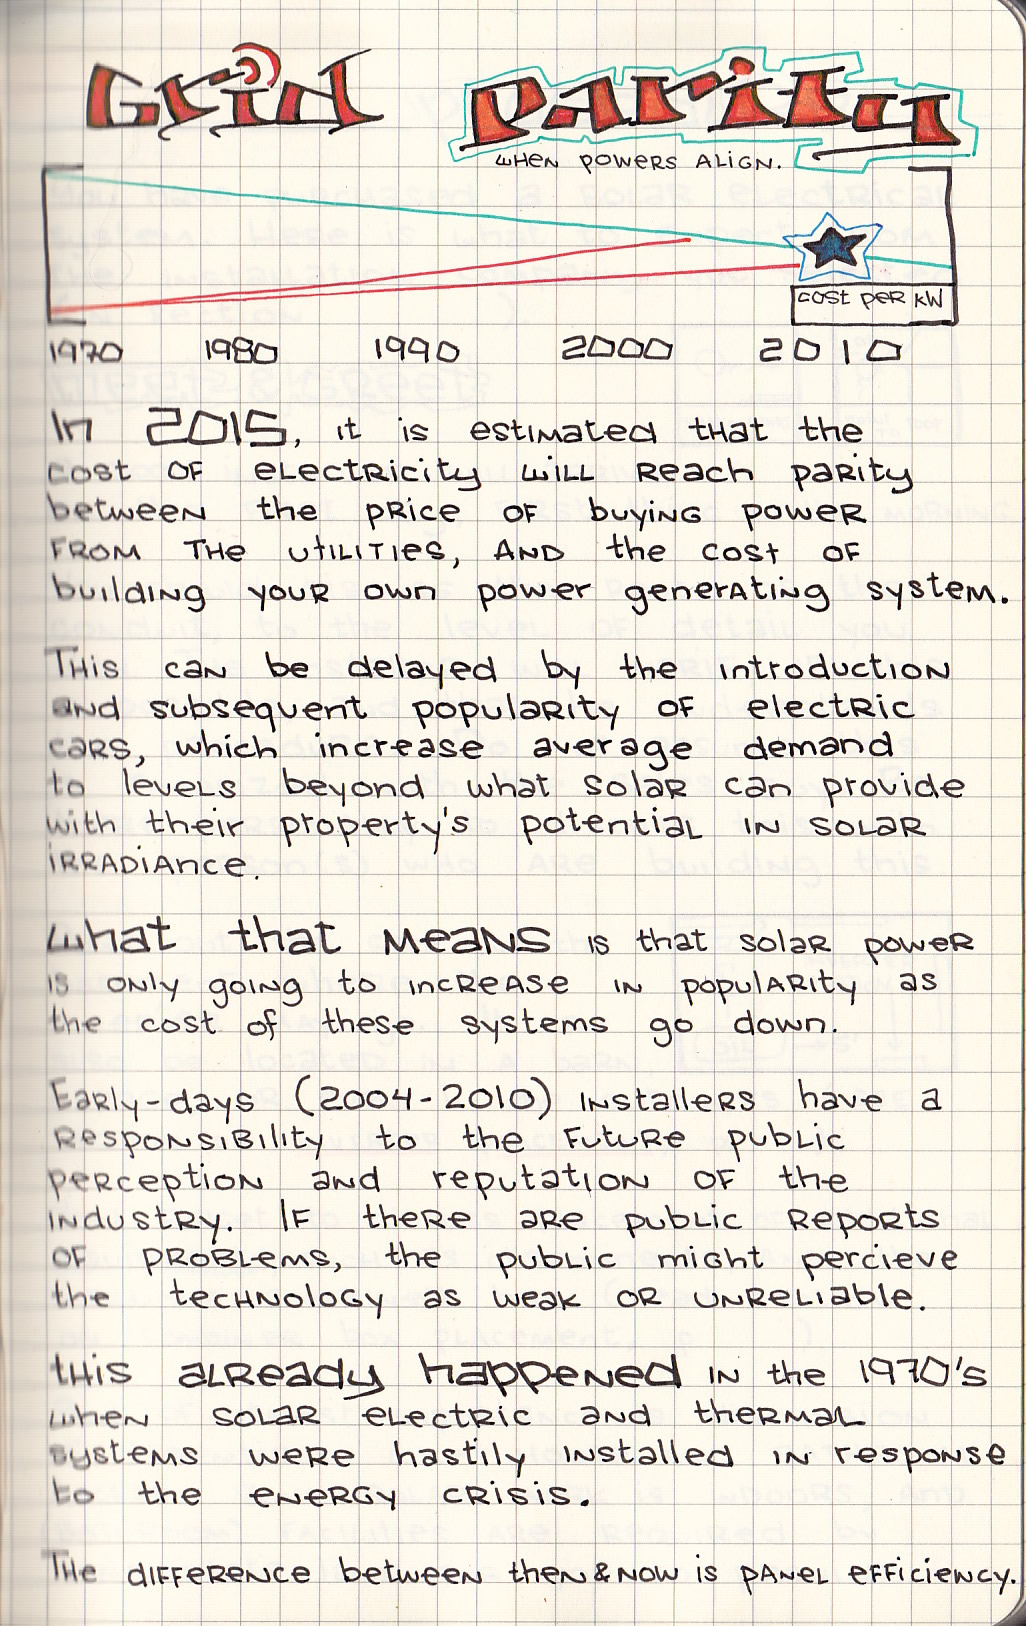 Grid Parity
WHEN POWERS ALIGN.
COST PER KW
1970 1980 1990 2000 2010
In 2015, it is estimated that the
cost of electricity will reach parity
between the price of buying power
from the utilities, and the cost of
building your own power generating system.
This can be delayed by the introduction
and subsequent popularity of electric
cars, which increase average demand
to levels beyond what solar can provide
with their property's potential in solar
irradiance.
What that means is that solar power
is only going to increase in popularity as
the cost of these systems go down.
Early-days (2004-2010) installers have a
responsibility to the future public
perception and reputation of the
industry. If there are public reports
of problems, the public might percieve
the technology as weak or unreliable.
this already happened in the 1970's
when solar electric and thermal
systems were hastily installed in response
to the energy crisis.
The difference between then & now is panel efficiency.